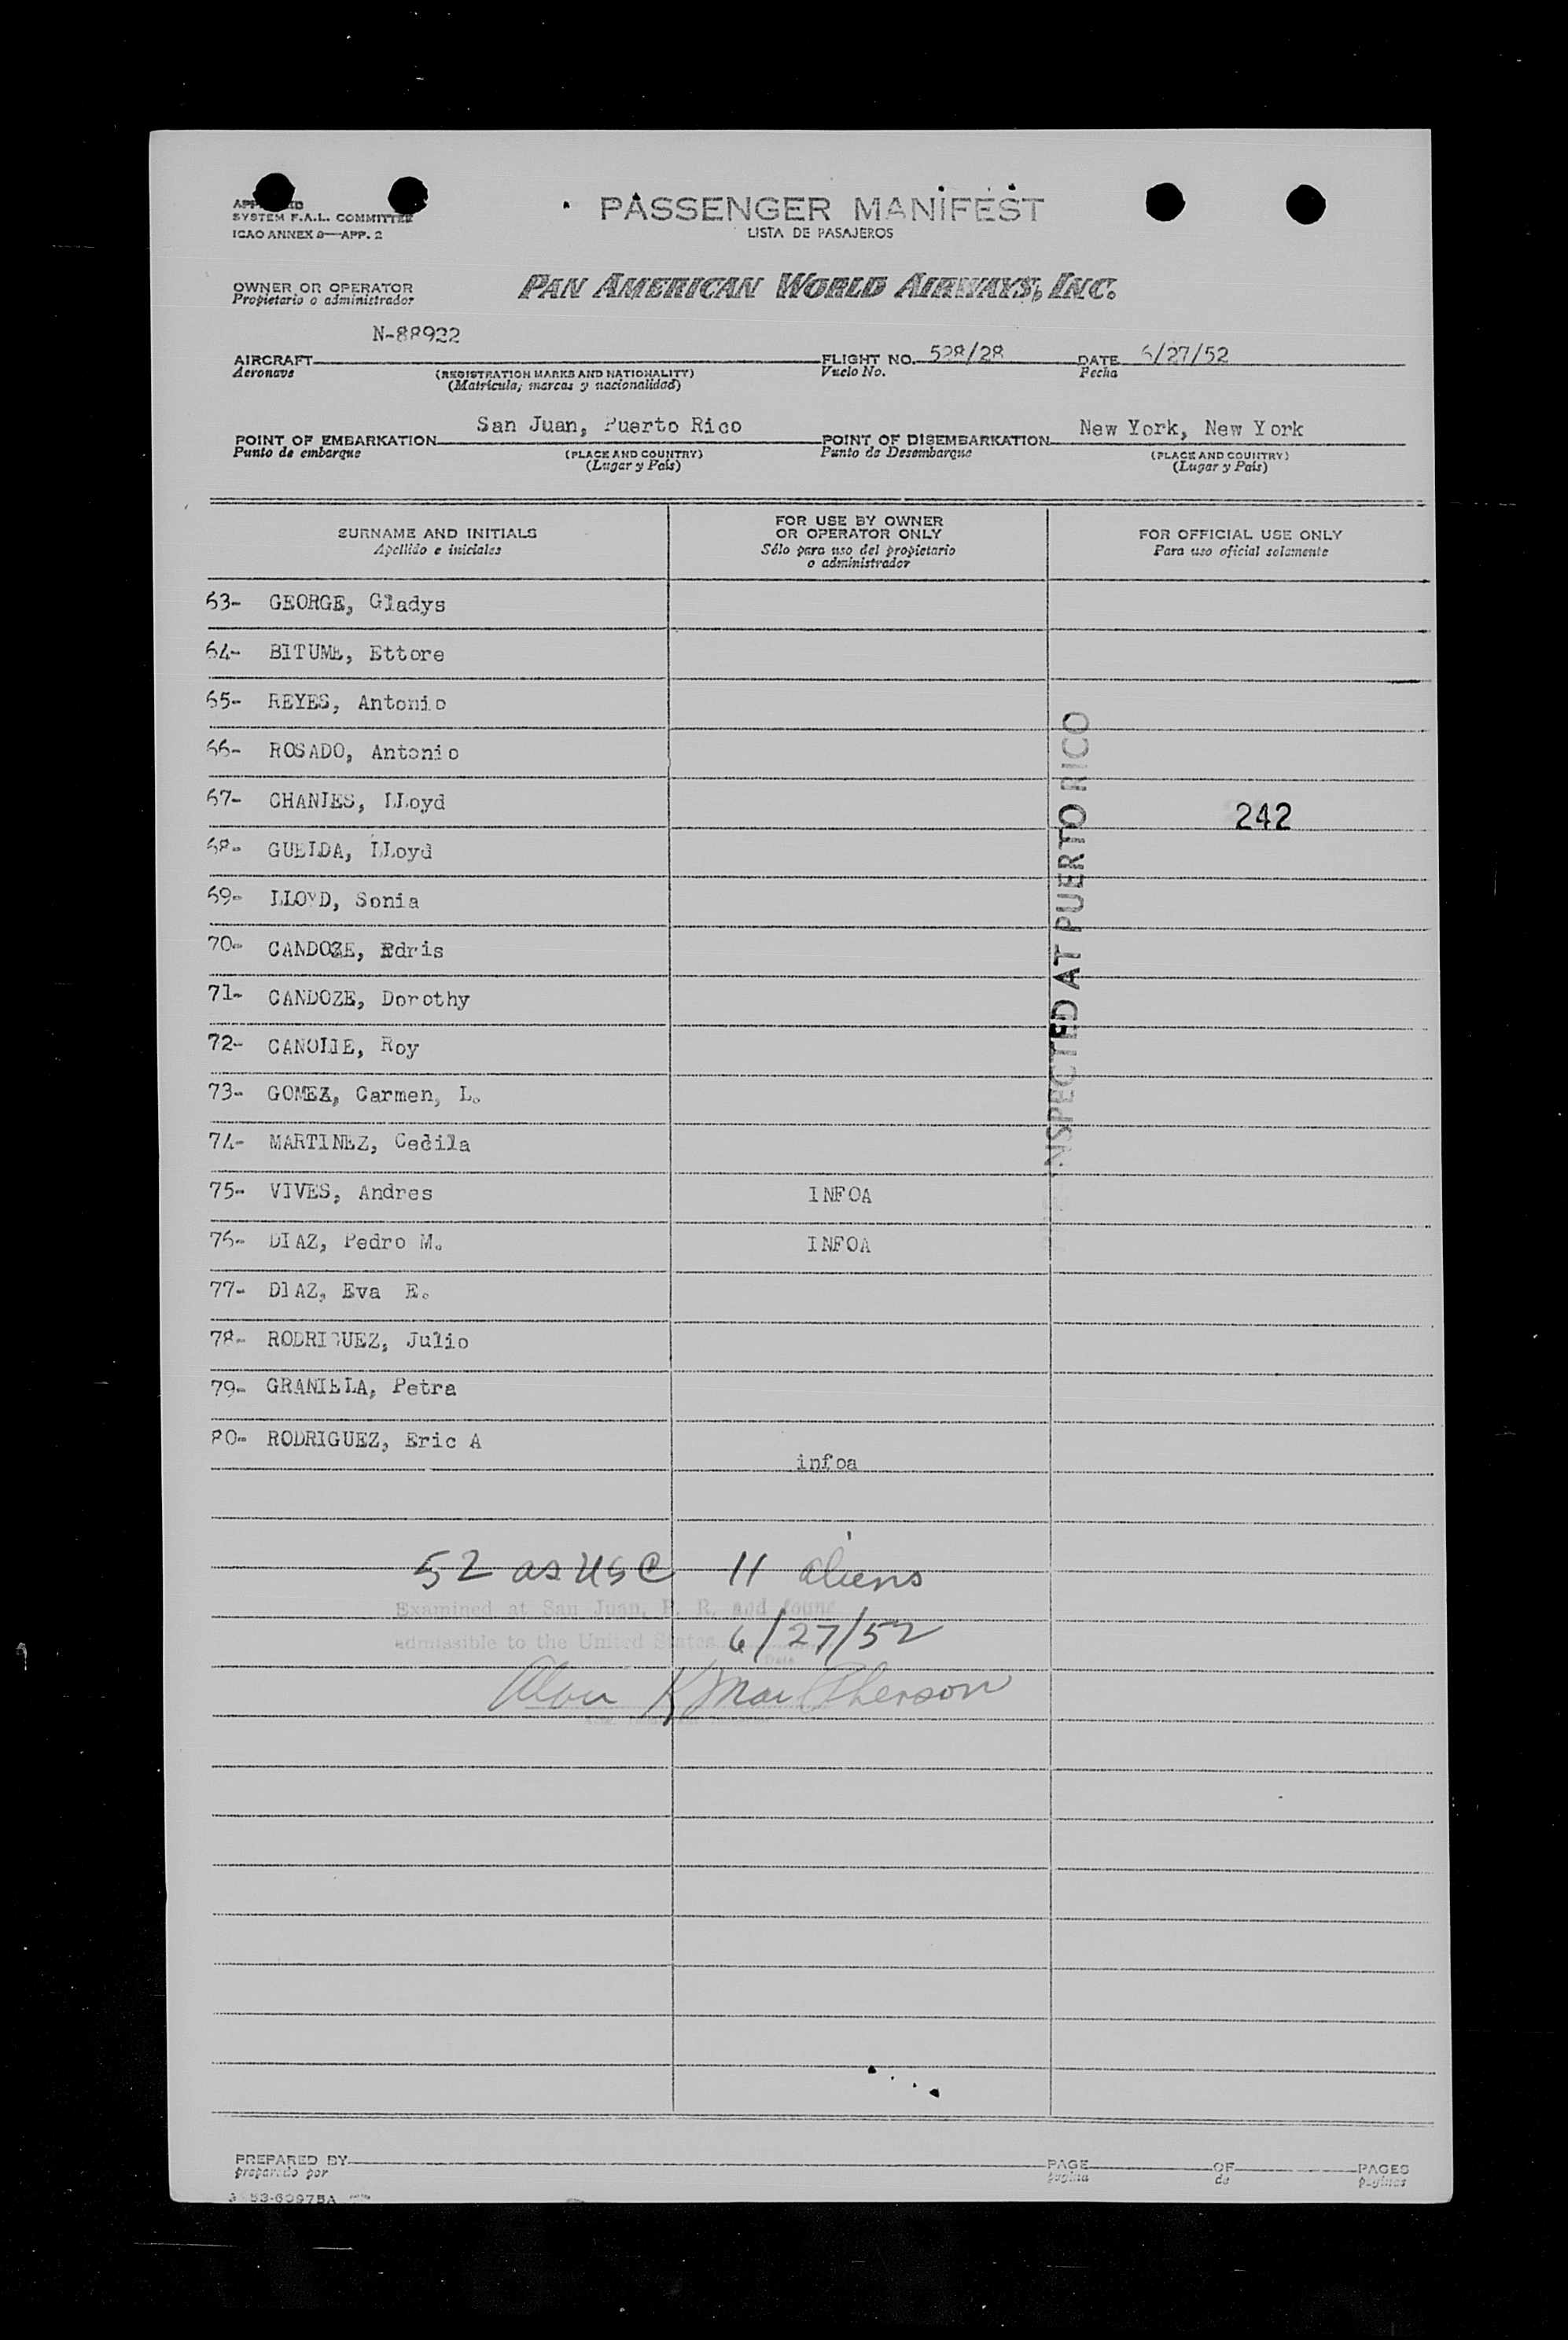 SYSTEM F.A.L. COMMITTEE
ICAO ANNEX 9—APP. 2
PASSENGER MANIFEST
LISTA DE PASAJEROS
OWNER OR OPERATOR
Propietario o administrador
PAN AMERICAN WORLD AIRWAYS, INC.
AIRCRAFT N-88922 FLIGHT NO. 528/28 DATE 6/27/52
Aeronave (REGISTRATION MARKS AND NATIONALITY) Vuelo No. Fecha
(Matrícula, marcas y nacionalidad)
POINT OF EMBARKATION San Juan, Puerto Rico POINT OF DISEMBARKATION New York, New York
Punto de embarque (PLACE AND COUNTRY) Punto de Desembarque (PLACE AND COUNTRY)
(Lugar y País) (Lugar y País)
SURNAME AND INITIALS
Apellido e iniciales
FOR USE BY OWNER
OR OPERATOR ONLY
Sólo para uso del propietario
o administrador
FOR OFFICIAL USE ONLY
Para uso oficial solamente
63- GEORGE, Gladys
64- BITUME, Ettore
65- REYES, Antonio
66- ROSADO, Antonio
67- CHANIES, LLoyd 242
68- GUELDA, LLoyd
69- LLOYD, Sonia
70- CANDOZE, Edris
71- CANDOZE, Dorothy
72- CANOLIE, Roy
73- GOMEZ, Carmen, L.
74- MARTINEZ, Cecila
75- VIVES, Andres INFOA
76- DIAZ, Pedro M. INFOA
77- DIAZ, Eva E.
78- RODRIGUEZ, Julio
79- GRANIELA, Petra
80- RODRIGUEZ, Eric A infoa
INSPECTED AT PUERTO RICO
52 as USC 11 aliens
Examined at San Juan, P. R. and found
admissible to the United States 6/27/52
Date
Alan K MacPherson
PREPARED BY PAGE OF PAGES
preparado por página de páginas